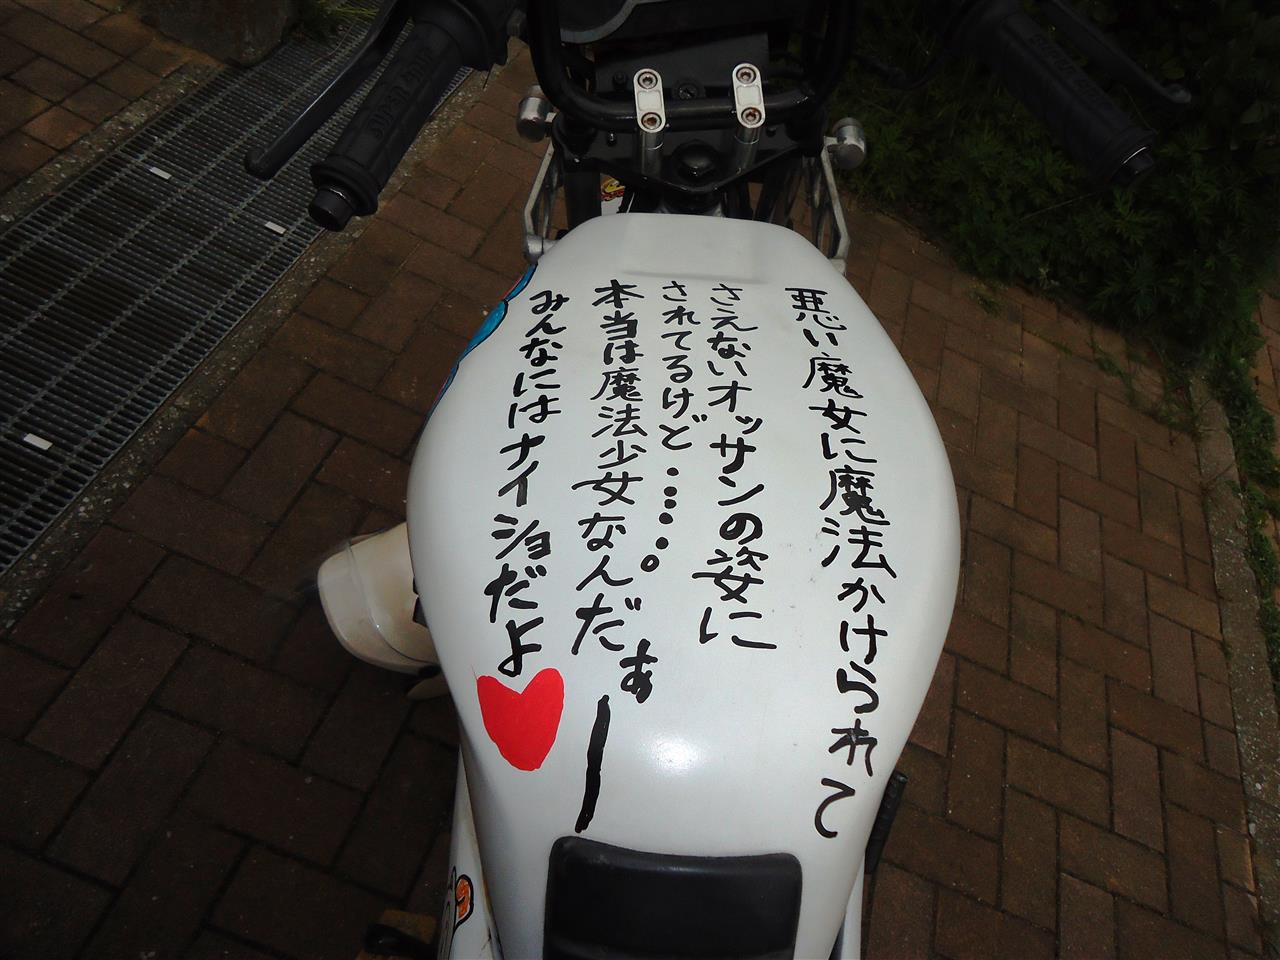 悪い魔女に魔法かけられて
さえないオッサンの姿に
されてるけど……。
本当は魔法少女なんだぁー
みんなにはナイショだよ